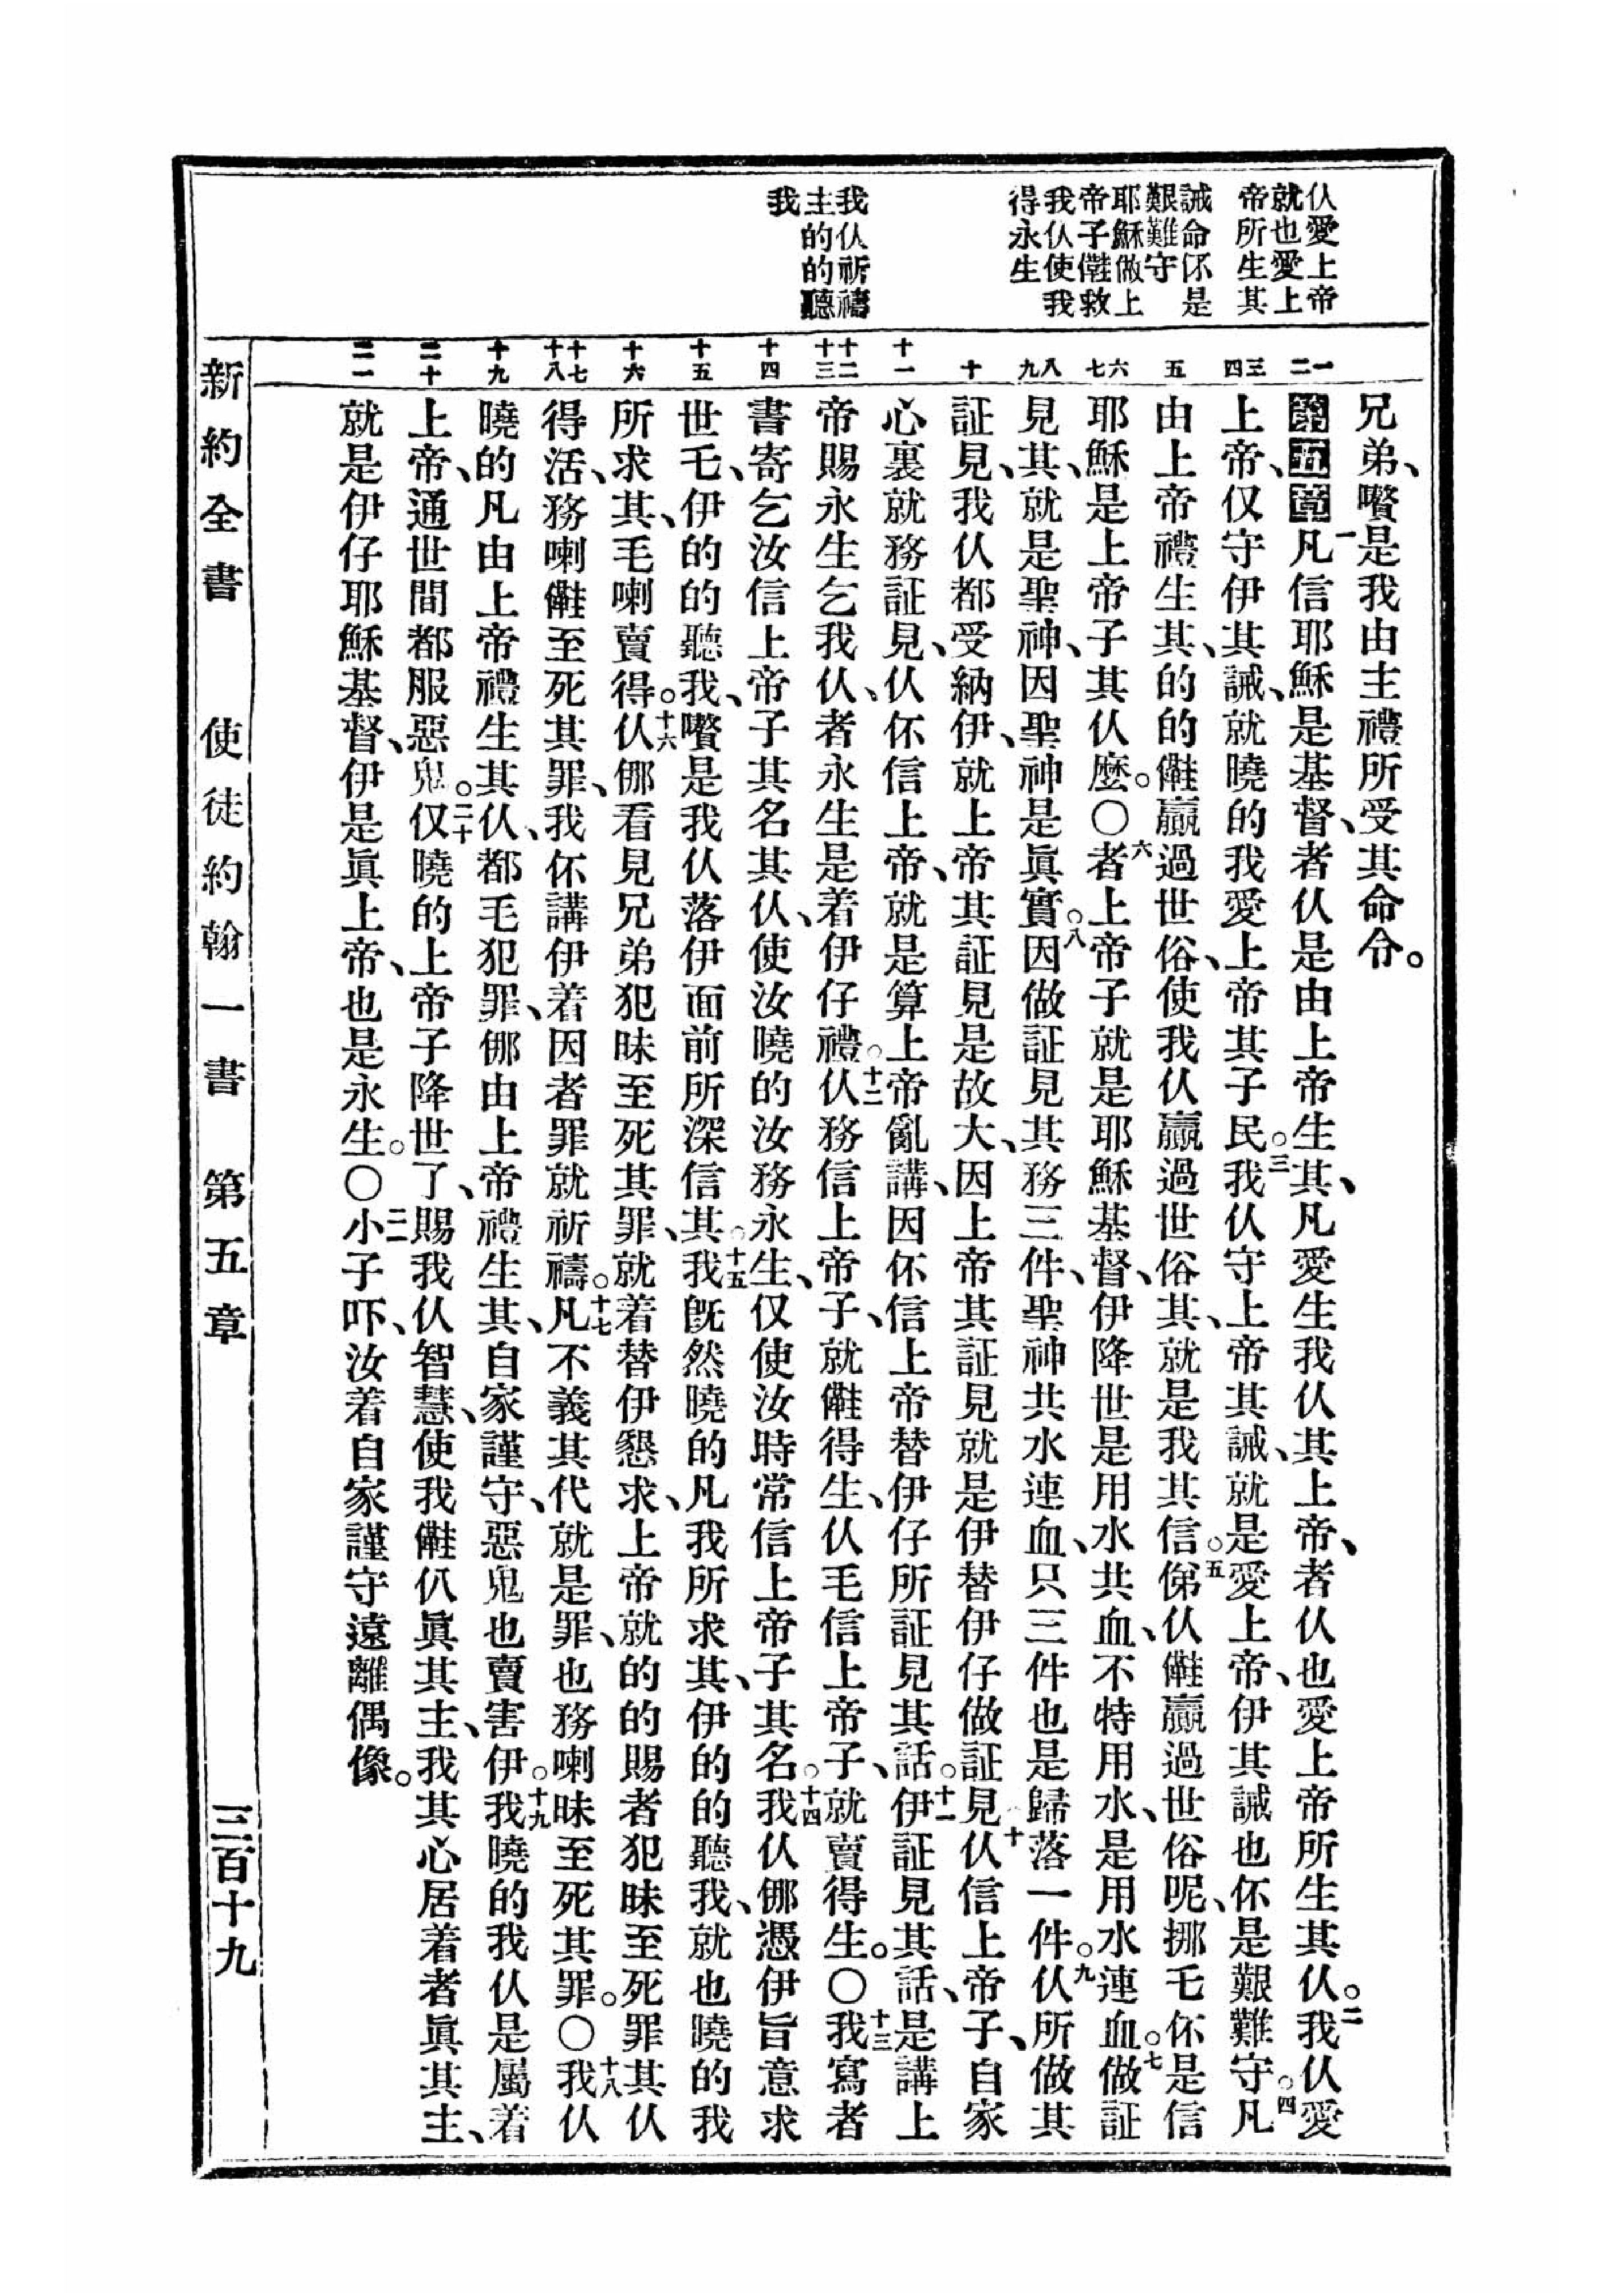 仈愛上帝
就也愛上
帝所生其
誡命伓是
艱難守
耶穌做上
帝子𠆧救
我仈使我
得永生
我仈祈禱
主的的聽
我
一 二 三 四 五 六 七 八 九 十 十一 十二 十三 十四 十五 十六 十七 十八 十九 二十 二一
兄弟、嚽是我由主禮所受其命令。
第五章一凡信耶穌是基督、者仈是由上帝生其、凡愛生我仈其上帝、者仈也愛上帝所生其仈。二我仈愛
上帝、仅守伊其誡、就曉的我愛上帝其子民。三我仈守上帝其誡、就是愛上帝、伊其誡也伓是艱難守。四凡
由上帝禮生其、的的𠆧贏過世俗、使我仈贏過世俗其、就是我其信。五俤仈𠆧贏過世俗呢、挪乇伓是信
耶穌是上帝子其仈麽。〇六者上帝子就是耶穌基督、伊降世是用水共血、不特用水、是用水連血。七做証
見其、就是聖神、因聖神是眞實。八因做証見其務三件、聖神共水連血、只三件也是歸落一件。九仈所做其
証見、我仈都受納伊、就上帝其証見是故大、因上帝其証見就是伊替伊仔做証見。十仈信上帝子、自家
心裏就務証見、仈伓信上帝、就是算上帝亂講、因伓信上帝替伊仔所証見其話。十一伊証見其話、是講上
帝賜永生乞我仈、者永生是着伊仔禮。十二仈務信上帝子、就𠆧得生、仈毛信上帝子、就賣得生。〇十三我寫者
書、寄乞汝信上帝子其名其仈、使汝曉的汝務永生、仅使汝時常信上帝子其名。十四我仈㑚憑伊旨意求
世乇、伊的的聽我、嚽是我仈落伊面前所深信其。十五我旣然曉的、凡我所求其、伊的的聽我、就也曉的我
所求其、毛喇賣得。十六仈㑚看見兄弟犯昧至死其罪、就着替伊懇求、上帝就的的賜者犯昧至死罪其仈
得活、務喇𠆧至死其罪、我伓講伊着因者罪就祈禱。十七凡不義其代就是罪、也務喇昧至死其罪。〇十八我仈
曉的凡由上帝禮生其仈、都毛犯罪、㑚由上帝禮生其、自家謹守、惡鬼也賣害伊。十九我曉的我仈是屬着
上帝、通世間都服惡鬼。二十仅曉的上帝子降世了、賜我仈智慧、使我𠆧仈眞其主、我其心居着者眞其主、
就是伊仔耶穌基督、伊是眞上帝、也是永生。〇二一小子吓、汝着自家謹守遠離偶像。
新約全書 使徒約翰一書 第五章 三百十九